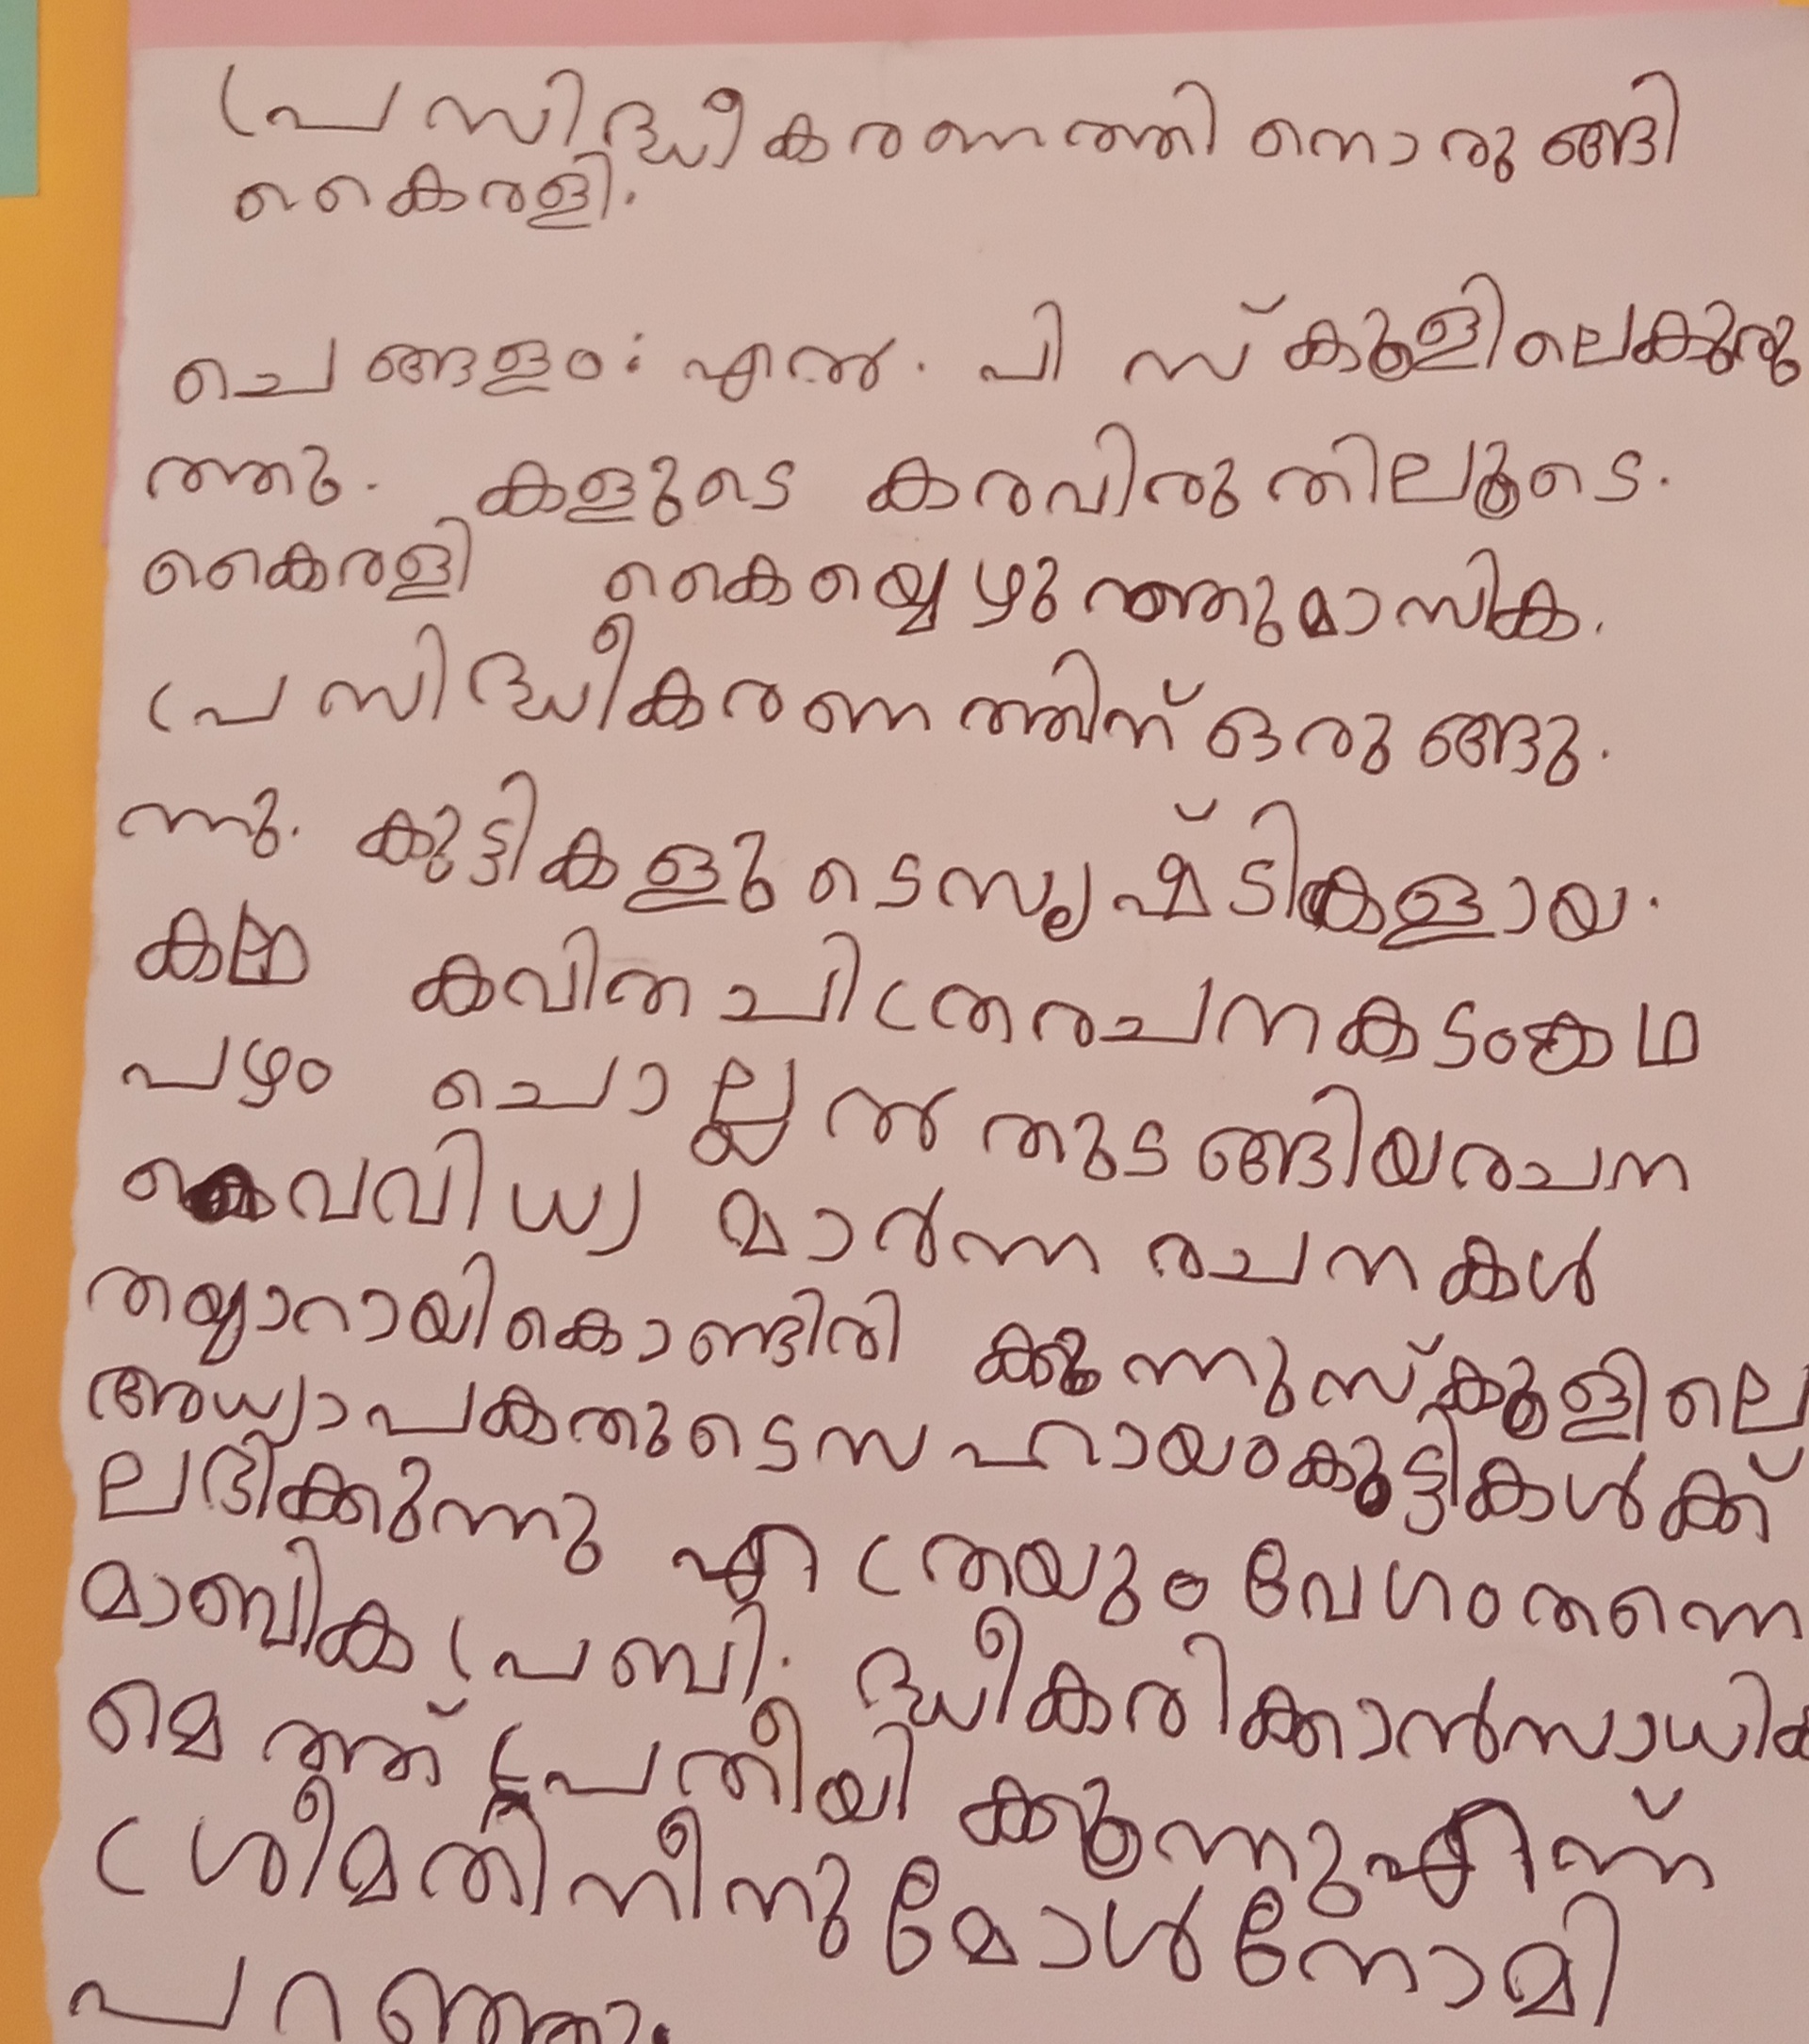 പ്രസിദ്ധീകരണത്തിനൊരുങ്ങി
കൈരളി.
ചെങ്ങളം: എൽ. പി സ്കൂളിലെകുരു
ത്തു. കളുടെ കരവിരുതിലൂടെ.
കൈരളി കൈയ്യെഴുത്തുമാസിക.
പ്രസിദ്ധീകരണത്തിന് ഒരുങ്ങു.
ന്നു. കുട്ടികളുടെസൃഷ്ടികളായ.
കഥ കവിതചിത്രരചനകടംങ്കഥ
പഴം ചൊല്ലൽ തുടങ്ങിയരചന
വൈവിധ്യ മാർന്ന രചനകൾ
തയ്യാറായികൊണ്ടിരിക്കുന്നുസ്കൂളിലെ
അധ്യാപകരുടെസഹായംകുട്ടികൾക്ക്
ലഭിക്കുന്നു എത്രയും വേഗംതന്നെ
മാബിക പ്രബി. ദ്ധീകരിക്കാൻസാധിക
മെത്ത് പ്രതീയിക്കുന്നുഎന്ന്
ശ്രീമതിനീനുമോൾനോമി
പറഞ്ഞു.